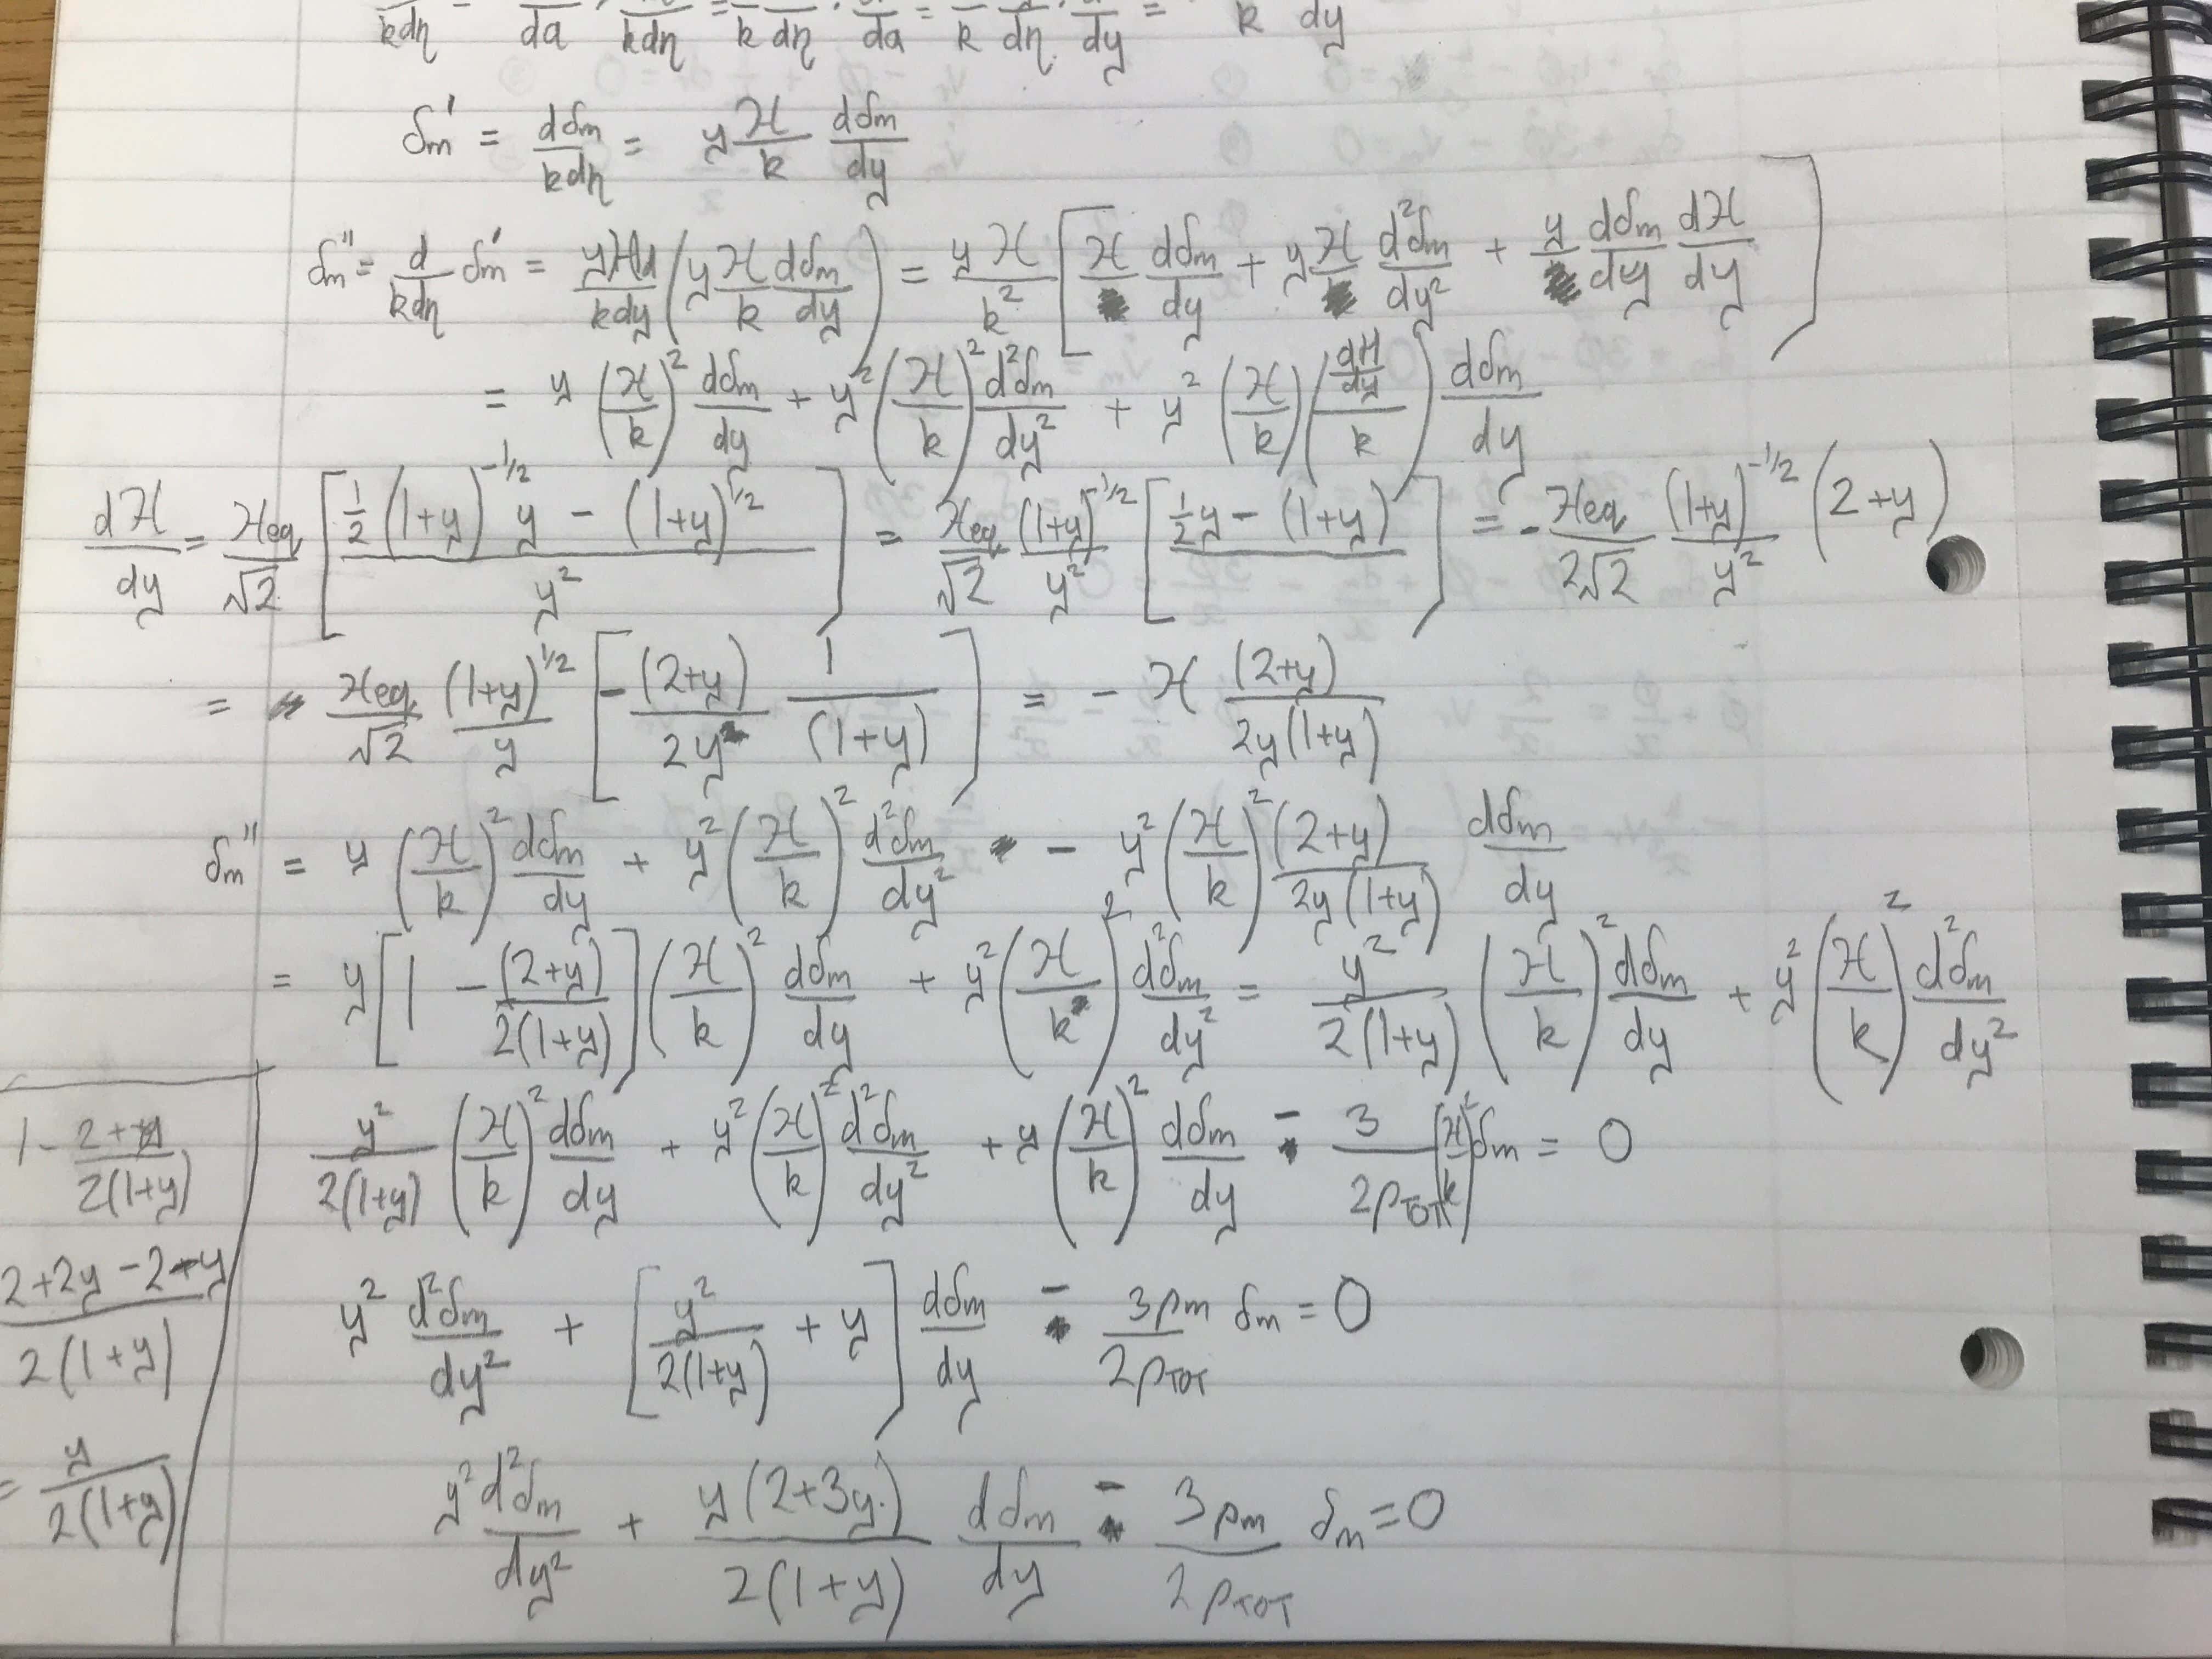 kdη – da · kdη = k dη · da = k dη · dy = k dy
δm' = dδm/kdη = y ℋ/k dδm/dy
δm'' = d/kdη δm' = yℋd/kdy (y ℋ/k dδm/dy) = yℋ/k² [ℋ dδm/dy + yℋ d²δm/dy² + y dδm/dy dℋ/dy]
= y (ℋ/k)² dδm/dy + y² (ℋ/k)² d²δm/dy² + y² (ℋ/k) ((dH/dy)/k) dδm/dy
dℋ/dy = ℋeq/√2 [(½(1+y)^-1/2 y – (1+y)^1/2)/y²] = ℋeq/√2 (1+y)^-1/2/y² [½y – (1+y)] = – ℋeq/2√2 (1+y)^-1/2/y² (2+y)
= ℋeq/√2 (1+y)^1/2/y [– (2+y)/2y 1/(1+y)] = – ℋ (2+y)/2y(1+y)
δm'' = y (ℋ/k)² dδm/dy + y² (ℋ/k)² d²δm/dy² – y² (ℋ/k)² (2+y)/2y(1+y) dδm/dy
= y [1 – (2+y)/2(1+y)] (ℋ/k)² dδm/dy + y² (ℋ/k)² d²δm/dy² = y²/2(1+y) (ℋ/k)² dδm/dy + y² (ℋ/k)² d²δm/dy²
1 – 2+y/2(1+y)
y²/2(1+y) (ℋ/k)² dδm/dy + y² (ℋ/k)² d²δm/dy² + y (ℋ/k)² dδm/dy – 3/2ρTOT (ℋ/k)² δm = 0
2+2y–2–y/2(1+y)
y² d²δm/dy² + [y²/2(1+y) + y] dδm/dy – 3ρm/2ρTOT δm = 0
= y/2(1+y)
y² d²δm/dy² + y(2+3y)/2(1+y) dδm/dy – 3ρm/2ρTOT δm = 0